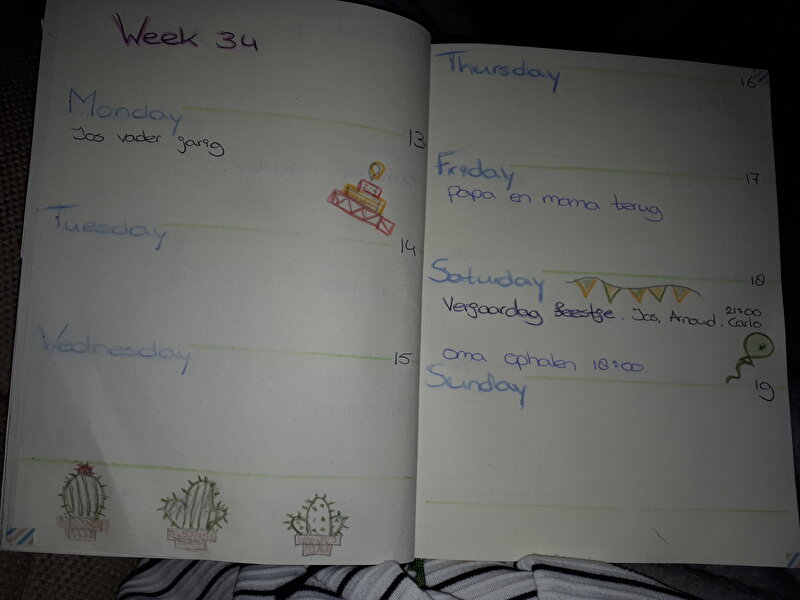 Week 34
Monday 13
Jos vader jarig
Tuesday 14
Wednesday 15
Thursday 16
Friday 17
papa en mama terug
Saturday 18
Verjaardag feestje. Jos, Arnoud, Carlo 21:00
oma ophalen 18:00
Sunday 19